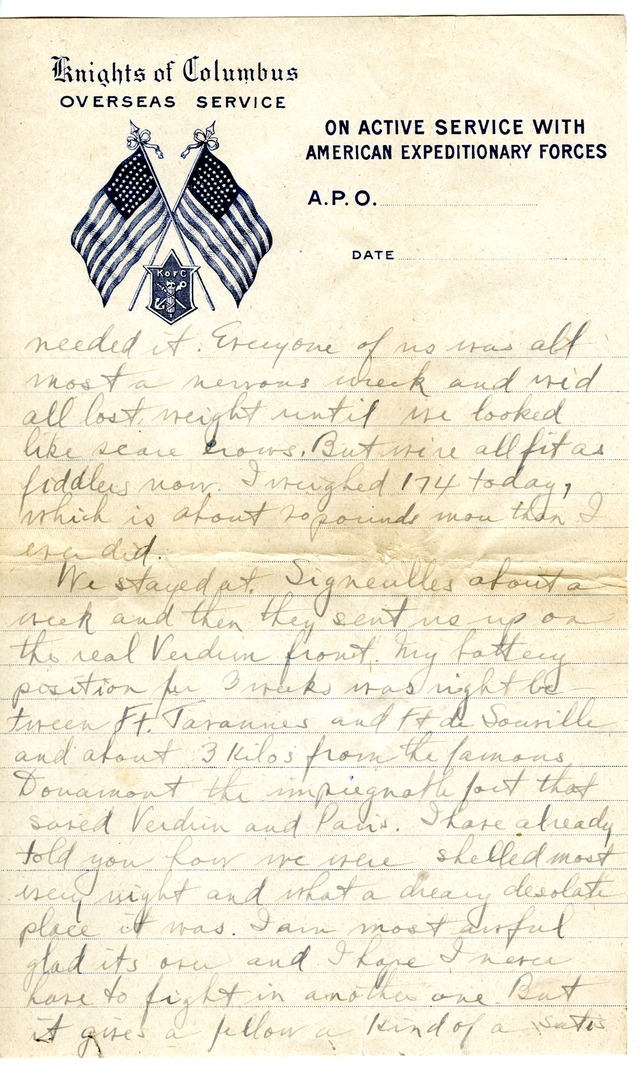 Knights of Columbus
OVERSEAS SERVICE
ON ACTIVE SERVICE WITH
AMERICAN EXPEDITIONARY FORCES
A.P.O.
DATE
K of C
needed it. Everyone of us was all
most a nervous wreck and we'd
all lost weight until we looked
like scare crows. But we're all fit as
fiddlers now. I weighed 174 today,
which is about 20 pounds more than I
ever did.
We stayed at Signeulles about a
week and then they sent us up on
the real Verdun front. My battery
position for 3 weeks was right be-
tween Ft. Tavannes and Ft de Souville
and about 3 Kilos from the famous
Douamont the impregnable fort that
saved Verdun and Paris. I have already
told you how we were shelled most
every night and what a dreary desolate
place it was. I am most awful
glad its over and I hope I never
have to fight in another one. But
it gives a fellow a kind of a satis